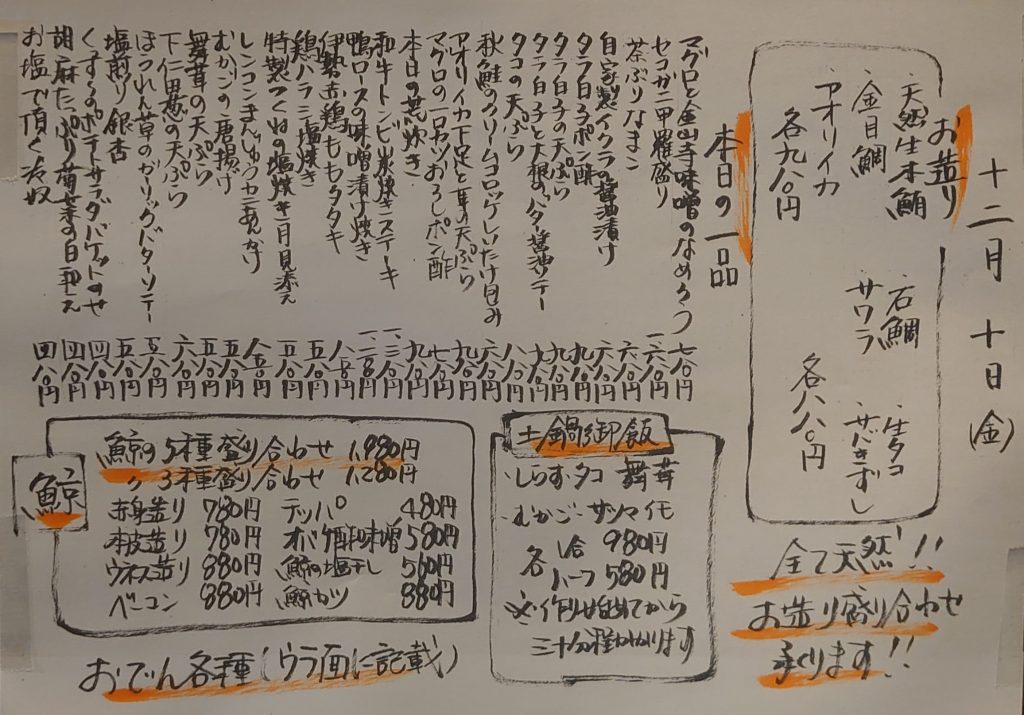 十二月十日(金)
お造り
・天然生本鮪
・金目鯛
・アオリイカ
各九八〇円
・石鯛
・サワラ
・生タコ
・サバきずし
各八八〇円
全て天然!!
お造り盛り合わせ
承ります!!
本日の一品
マグロと金山寺味噌のなめろう 七八〇円
セコガニ甲羅盛り
茶ぶりなまこ 六八〇円
自家製イクラの醤油漬け
タラ白子ポン酢
タラ白子の天ぷら
タラ白子と大根のバター醤油ソテー
タコの天ぷら
秋鮭のクリームコロッケしいたけ包み
アオリイカ下足と耳の天ぷら
マグロの一口カツおろしポン酢
本日の煮炊き
和牛トンビ炭焼きステーキ
鴨ロースの味噌漬け焼き
伊勢赤鶏ももタタキ
鶏ハラミ塩焼き
特製つくねの塩焼き月見添え
レンコンまんじゅうカニあんかけ
むかごの唐揚げ
舞茸の天ぷら
下仁田葱の天ぷら
ほうれん草のガリックバターソテー
塩煎り銀杏
くずしポテトサラダバケットのせ 四八〇円
胡麻たっぷり菊菜の白和え 四八〇円
お塩で頂く冷奴 四八〇円
土鍋御飯
・しらす・タコ・舞茸
・むかご・サツマイモ
各 1合 980円
ハーフ 580円
※作り始めてから
三十分程かかります
鯨
鯨の5種盛り合わせ 1,980円
〃 3種盛り合わせ 1,280円
赤身造り 780円 テッパ 480円
本皮造り 780円 オバケ酢味噌 580円
ウネス造り 880円 鯨の塩干し 560円
ベーコン 880円 鯨カツ 880円
おでん各種(ウラ面に記載)